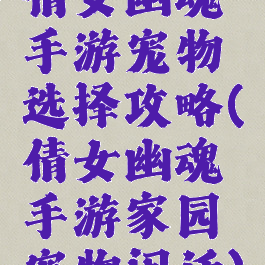 倩女幽魂
手游宠物
选择攻略(
倩女幽魂
手游家园
宠物闲话)